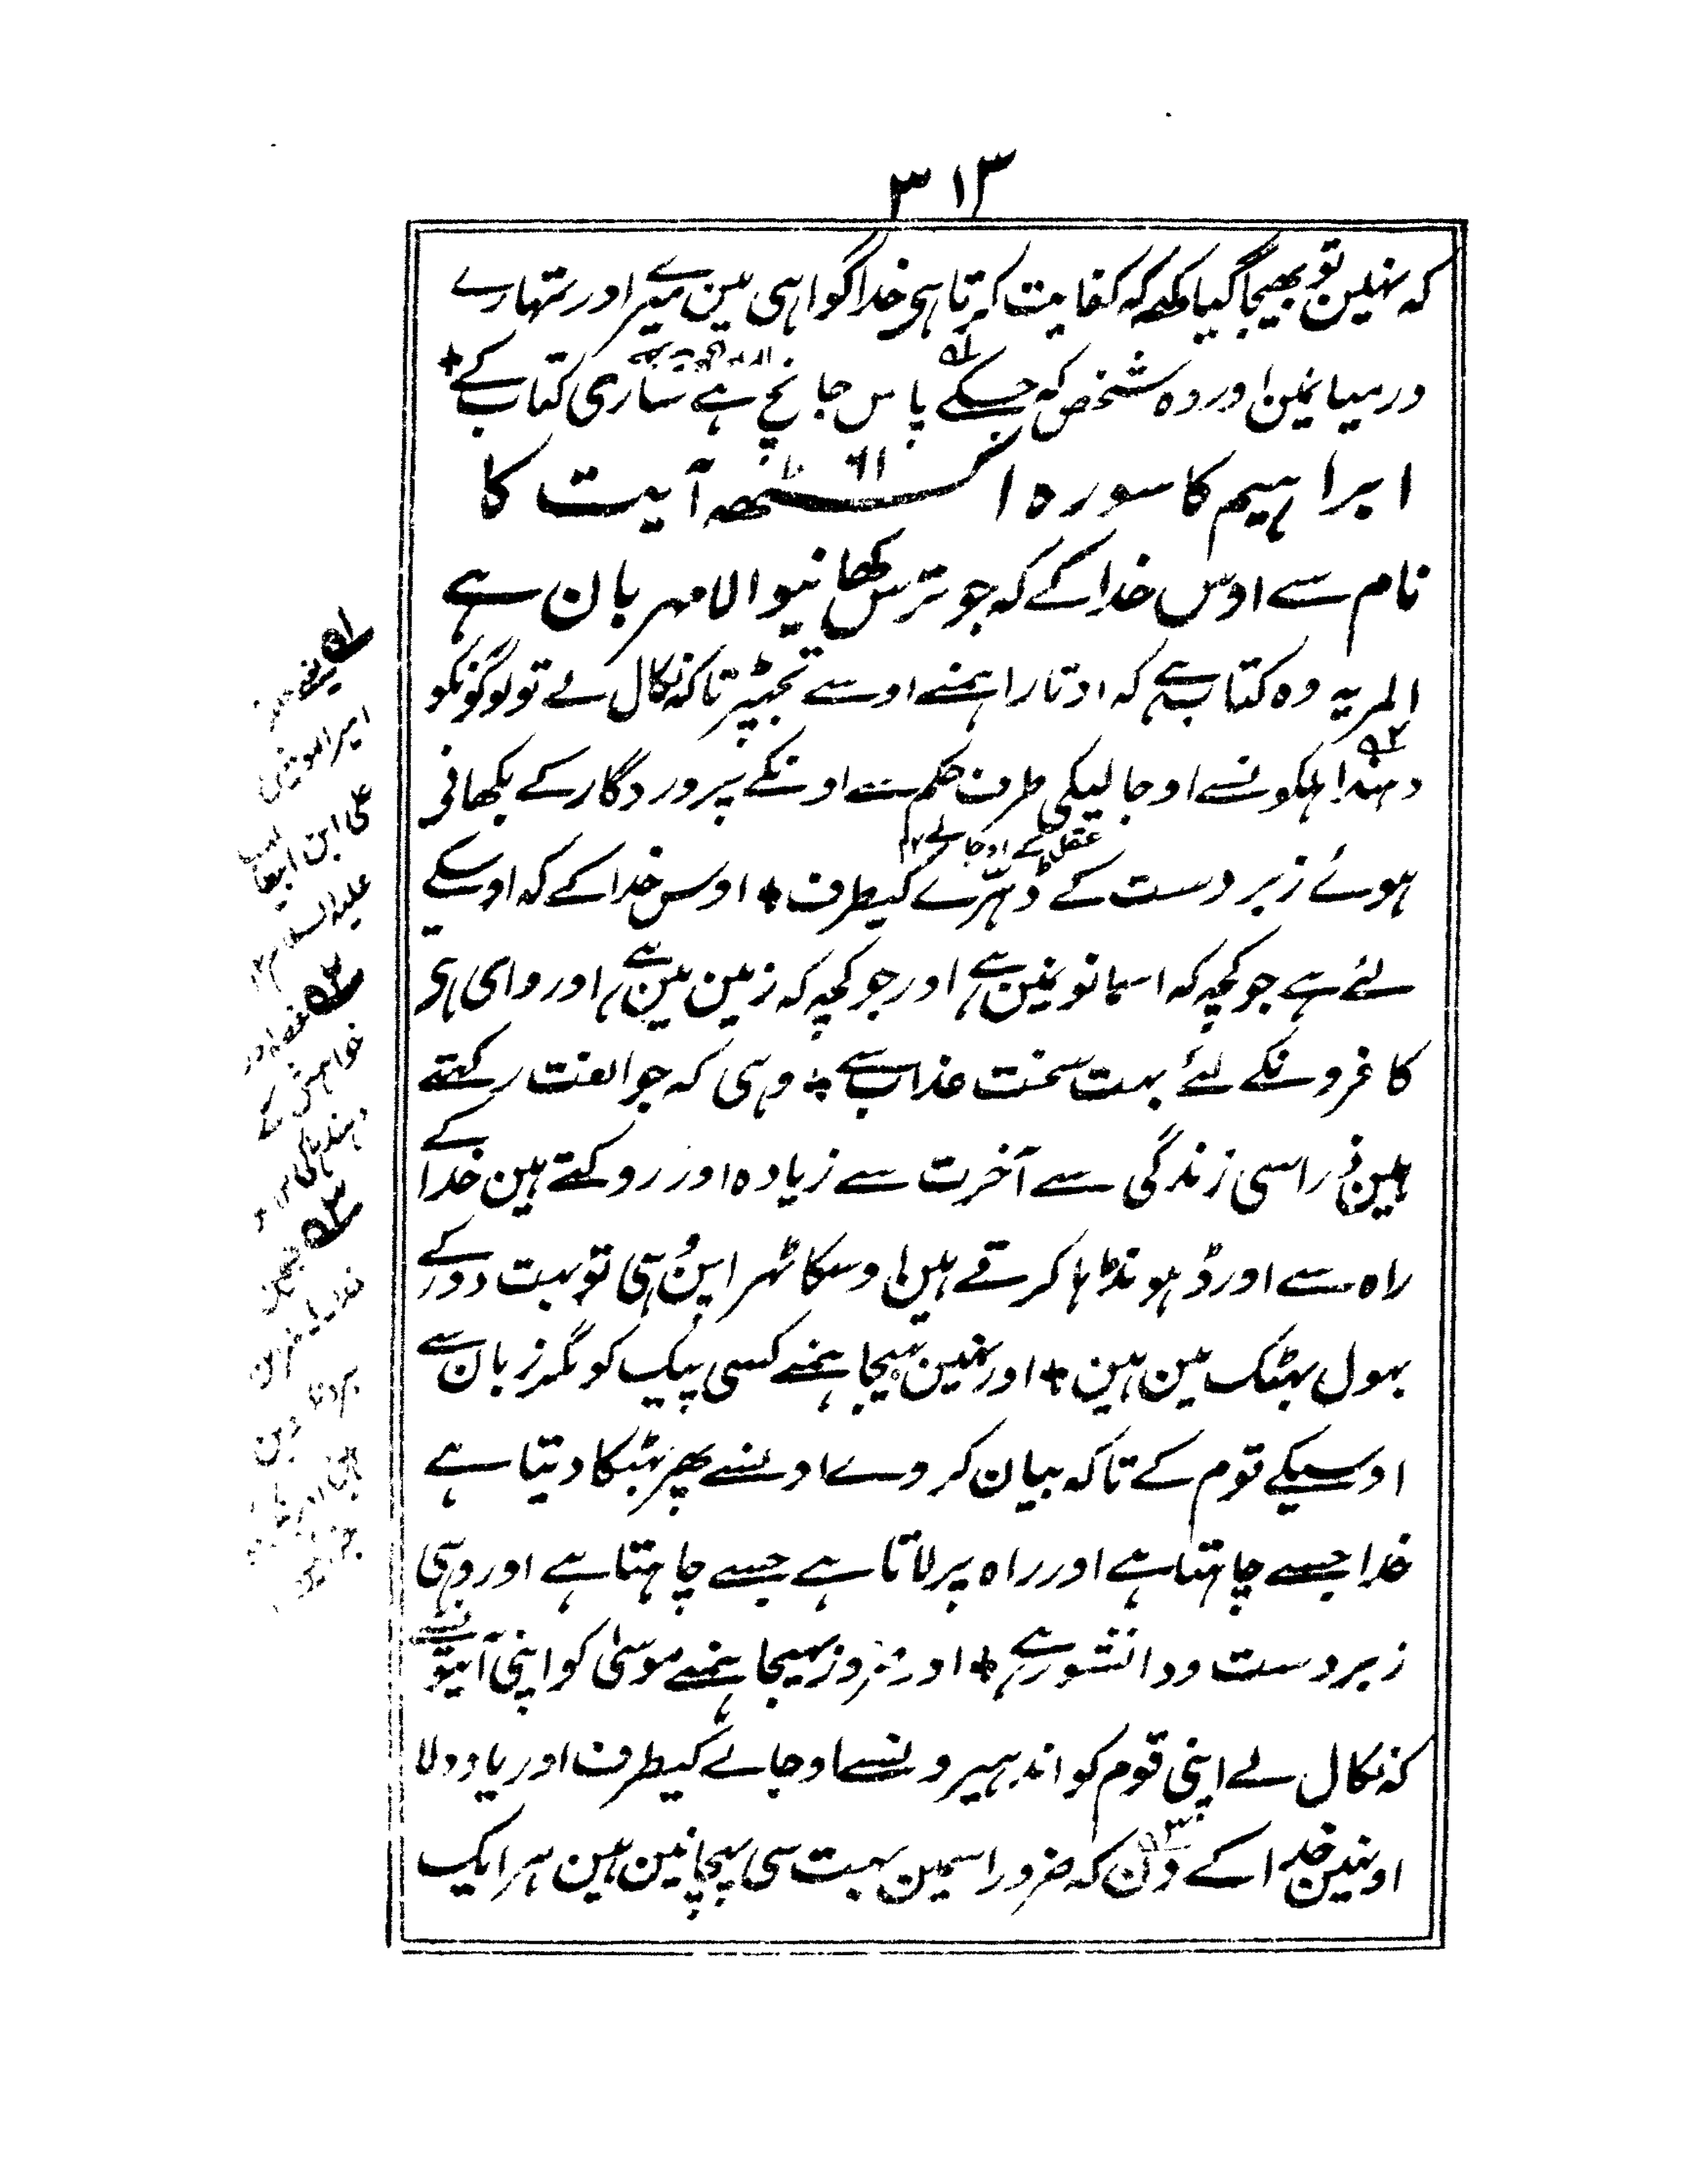 ۳۱۳
کہ نہین تو بھیجا گیا کہہ کہ کفایت کرتا ہی خدا گواہی مین میرے اور تمہارے
درمیانمین اور وہ شخص کہ جسکے پاس جانچ ہے ساری کتاب کے +
ابراہیم کا سورہ اکسٹھہ آیت کا
۶۱
نام سے اوس خدا کے کہ جو ترس کھانیوالا مہربان ہے
المر یہ وہ کتاب ہے کہ اوتارا ہمنے اوسے تجہپر تاکہ نکال لے تو لوگونکو
دہندلکونسے اوجالیکی طرف حکم سے اونکے پروردگار کے بکھانی
عقل کے اوجالے ۱۲
ہوئے زبردست کے ڈہرّے کیطرف + اوس خدا کے کہ اوسکے
لئے ہے جو کچہ کہ اسمانونمین ہے اور جو کچہ کہ زمین مین ہے اور وای ہی
کافرونکے لئے بہت سخت عذاب سے + وہی کہ جو الفت رکہتے
ہین ذراسی زندگی سے آخرت سے زیادہ اور روکتے ہین خدا کے
راہ سے اور ڈہونڈہا کرتے ہین اوسکا ٹہراپن وُہی تو بہت دور کے
بہول بہٹک مین ہین + اور نہین بہیجا ہمنے کسی پیک کو مگر زبان سے
اوسیکے قوم کے تاکہ بیان کر دے اونسے پھر بہٹکا دیتا ہے
خدا جسے چاہتا ہے اور راہ پر لاتا ہے جسے چاہتا ہے اور وہی
زبردست و دانشور ہے + اور ضرور بہیجا ہمنے موسیٰ کو اپنی آیتونسے
کہ نکال لے اپنی قوم کو اندہیرونسے اوجالے کیطرف اور یاد دلا
اونہین خدا کے دن کہ ضرور اسمین بہت سی پہچانین ہین ہر ایک
۱
یعنے
امیرالمومنین
علی ابن ابیطالب
علیہ السلام ۱۲
۲
غصہ اور
خواہش کے
۳